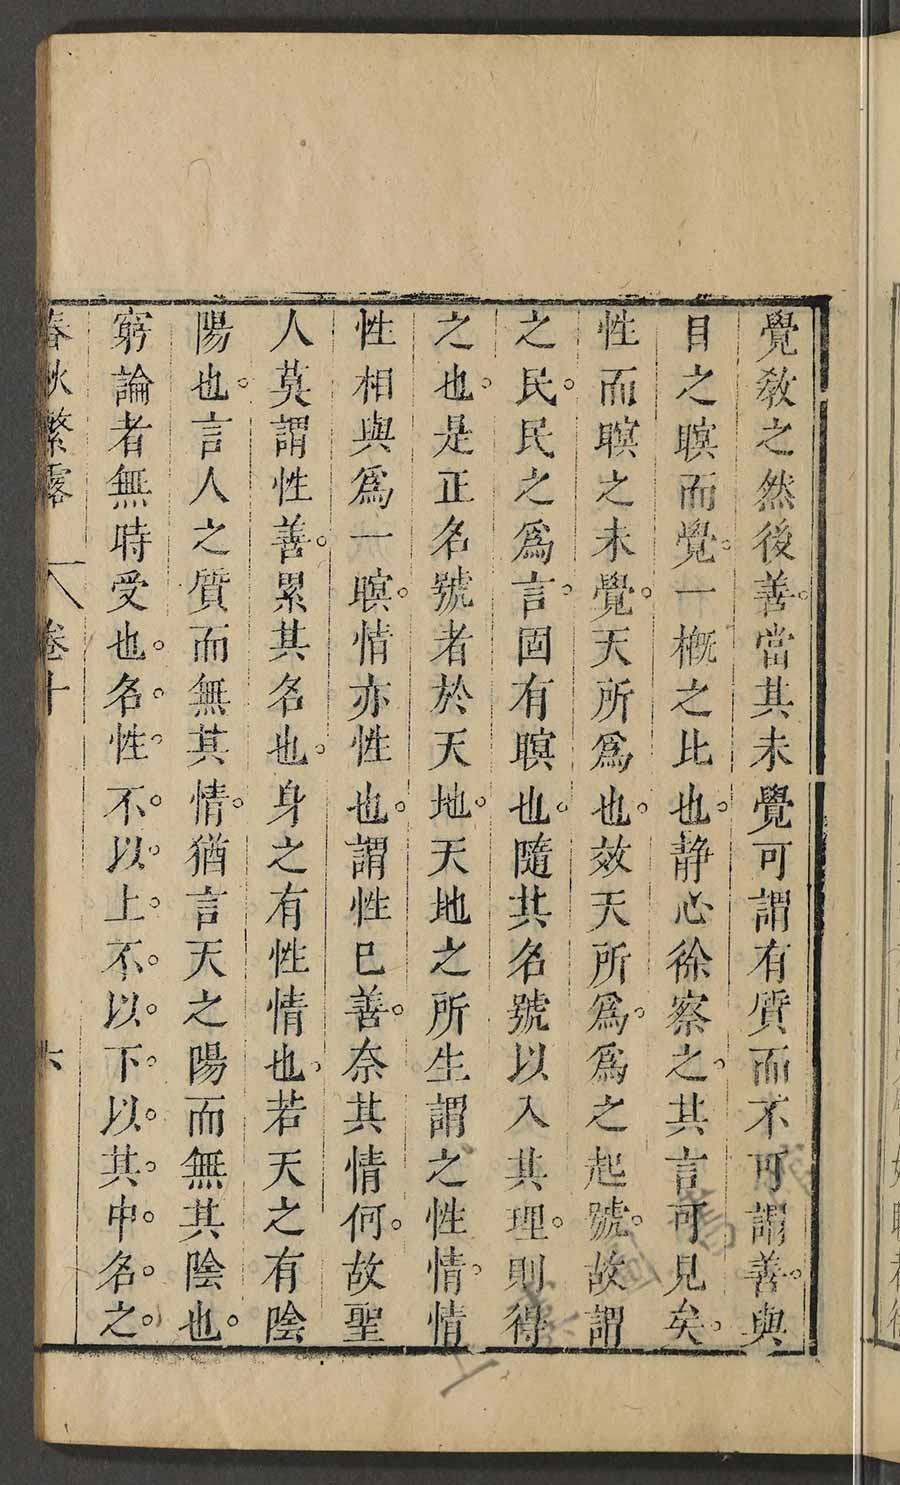 覺教之然後善。當其未覺可謂有質而不可謂善。與
目之瞑而覺。一槪之比也。静心徐察之。其言可見矣。
性而瞑之未覺。天所爲也。效天所爲。爲之起號。故謂
之民。民之爲言。固有瞑也。隨其名號以入其理。則得
之也。是正名號者於天地。天地之所生謂之性情。情
性相與爲一瞑。情亦性也。謂性已善。奈其情何。故聖
人莫謂性善。累其名也。身之有性情也。若天之有陰
陽也。言人之質而無其情。猶言天之陽而無其陰也。
窮論者無時受也。名。性。不。以。上。不。以。下。以。其。中。名。之。
春秋繁露 卷十 六